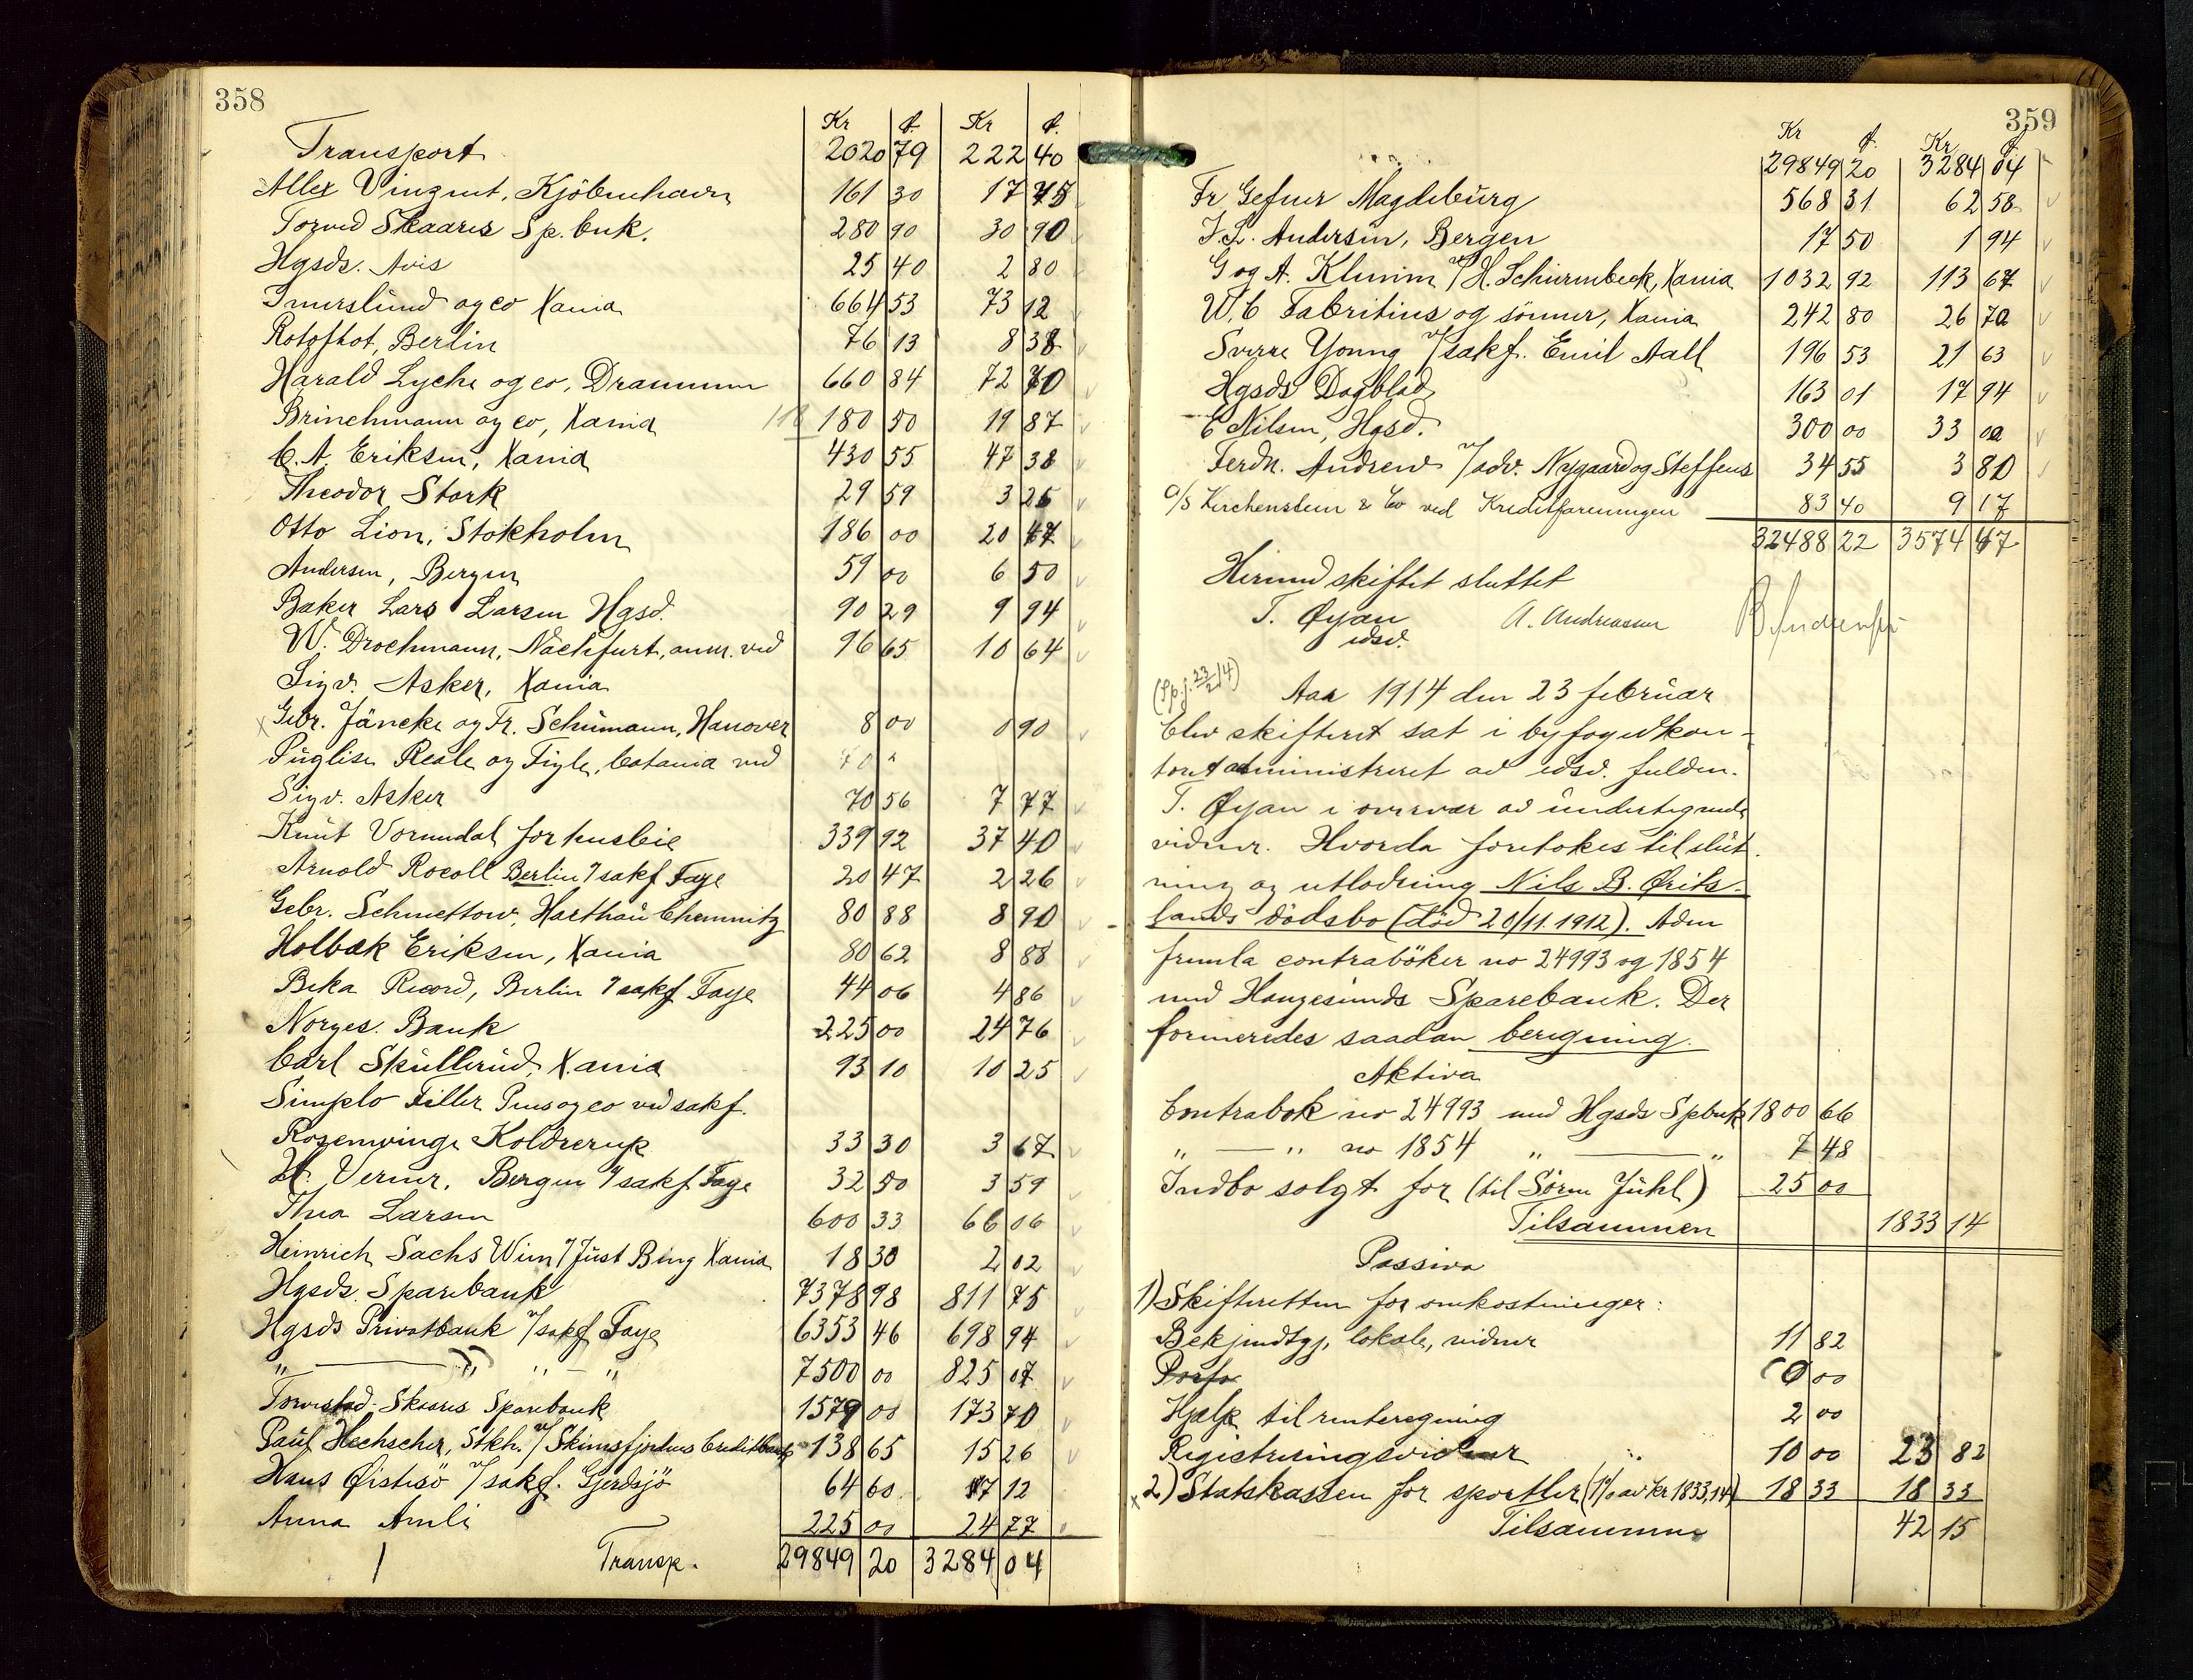 358
Kr ø. Kr ø.
Transport 2020 79 222 40
Allex Vingent, Kjöbenhavn 161 30 17 75
Torved Skaares Sp.bnk. 280 90 30 90
Hgsds. Avis 25 40 2 80
Imerslund og co Xania 664 53 73 12
Rotofhot, Berlin 76 13 8 38
Harald Lyche og co, Drammen 660 84 72 70
Brinchmann og co, Xania 180 50 19 87
C. A. Eriksen, Xania 430 55 47 38
Theodor Stork 29 59 3 26
Otto Lion, Stokholm 186 00 20 47
Andersen, Bergen 59 00 6 50
Baker Lars Larsen Hgsd. 90 29 9 94
W. Drochmann, Nachfurt, anm. ved 96 65 10 64
Sigv. Asker, Xania
Gebr. Jäncke og Fr. Schumann, Hanover 8 00 0 90
Puglisi Reale og Figle, Catania ved
Sigv. Asker 70 56 7 77
Knut Vormdal for husleie 339 92 37 40
Arnold Rocoll Berlin v/sakf Faye 20 47 2 26
Gebr. Schmettow, Harthau Chemnitz 80 88 8 90
Holbæk Eriksen, Xania 80 62 8 88
Beka Record, Berlin v/sakf Faye 44 06 4 86
Norges. Bank 225 00 24 76
Carl Skullerud, Xania 93 10 10 25
Simplo Filler Pens og co ved sakf.
Rosenvinge Kolderup 33 30 3 67
H. Verner, Bergen v/sakf Faye 32 50 3 59
Thea Larsen 600 33 66 06
Heinrich Sachs Wien v/Just Bing Xania 18 30 2 02
Hgsds. Sparebank 7378 98 811 75
Hgsds Privatbank v/sakf Faye 6353 46 698 94
" — " " — " 7500 00 825 07
Torvestad-Skaares Sparebank 1579 00 173 70
Paul Hechscher, Stkh. v/Skiensfjordens Creditbank 138 65 15 26
Hans Øistesö v/sakf. Gjerdsjö 64 60 7 12
Anna Amli 225 00 24 77
Transp. 29849 20 3284 04
359
Kr ø. Kr ø.
29849 20 3284 04
Fr Gefner Magdeburg 568 31 62 58
J. L. Andersen, Bergen 17 50 1 94
G og A. Klemm v/H. Schirmbeck, Xania 1032 92 113 67
W. C Fabritius og sønner, Xania 242 80 26 70
Sverre Young v/sakf. Emil Aall 196 53 21 63
Hgsds Dagblad 163 01 17 94
E Nilsen, Hgsd. 300 00 33 00
Ferdn. Andrew v/adv. Nygaard og Steffens 34 55 3 80
A/S Kirchenstein & Co ved Kreditforeningen 83 40 9 17
32488 22 3574 47
Hermed skiftet sluttet
T. Øyan A. Andreassen B. Andersen
edsv.
(Sp.j. 23/2 14) Aar 1914 den 23 februar
blev skifteret sat i byfogedkon-
toret administreret av edsv. fuldm.
T. Øyan i overvær av undertegnede
vidner. Hvorda foretokes til slut-
ning og utlodning Nils B. Ørits-
lands dödsbo (död 20/11.1912). Adm
fremla contraböker no 24993 og 1854
med Haugesunds Sparebank. Der
formeredes saadan beregning.
Aktiva
Contrabok no 24993 med Hgsds Spbnk 1800 66
" — " no 1854 " — " 7 48
Indbo solgt for (til Sörm Juhl) 25 00
Tilsammen 1833 14
Passiva
1) Skifteretten for omkostninger:
Bekjendtgj, lokale, vidner 11 82
Porto 0 00
Hjelp til renteregning 2 00
Registreringsvidner 10 00 23 82
2) Statskassen for sportler (1% av kr 1833,14) 18 33 18 33
Tilsammen 42 15